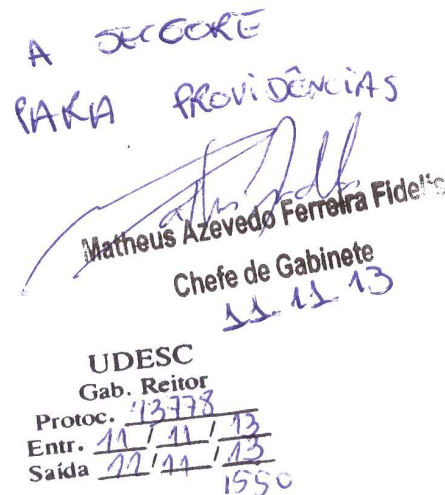 A SECCORE
PARA PROVIDÊNCIAS
Matheus Azevedo Ferreira Fidelis
Chefe de Gabinete
11.11.13
UDESC
Gab. Reitor
Protoc. 13778
Entr. 11 / 11 / 13
Saída 11 / 11 / 13
1550